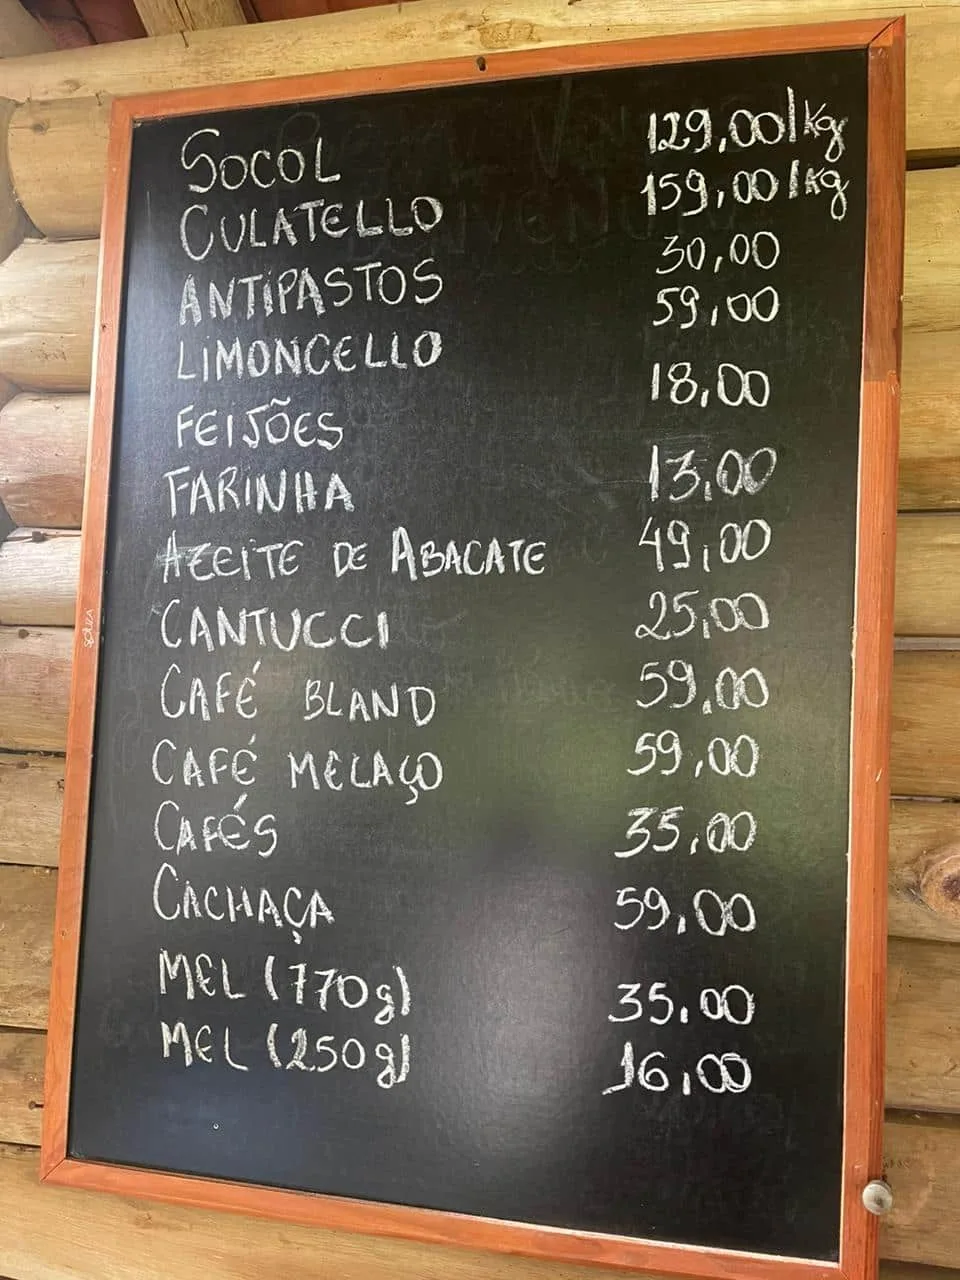 SOCOL 129,00/kg
CULATELLO 159,00/kg
ANTIPASTOS 30,00
LIMONCELLO 59,00
FEIJÕES 18,00
FARINHA 13,00
AZEITE DE ABACATE 49,00
CANTUCCI 25,00
CAFÉ BLAND 59,00
CAFÉ MELAÇO 59,00
CAFÉS 35,00
CACHAÇA 59,00
MEL (770g) 35,00
MEL (250g) 16,00